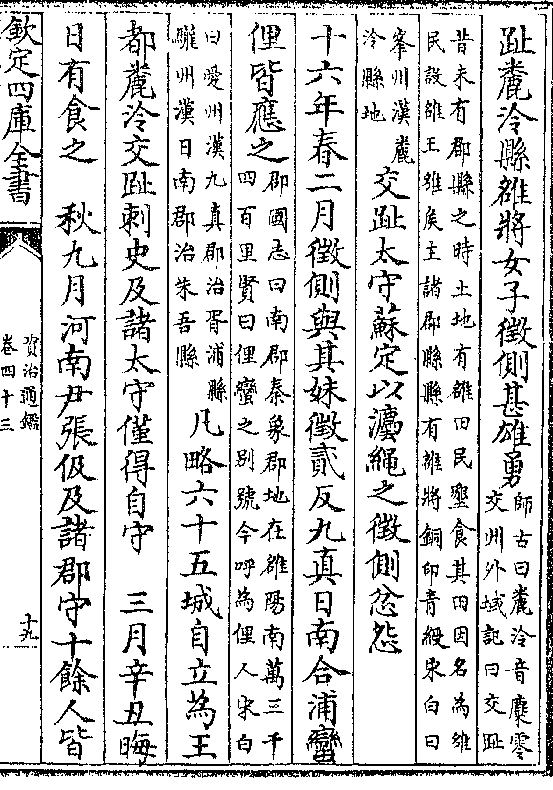 趾麊泠縣雒將女子徵側甚雄勇師古曰麊泠音麋零
交州外域記曰交趾
昔未有郡縣之時土地有雒田民墾食其田因名為雒
民設雒王雒侯主諸郡縣縣有雒將銅印青綬宋白曰
峯州漢麊
泠縣地交趾太守蘇定以灋繩之徵側忿怨
十六年春二月徵側與其妹徵貳反九真日南合浦蠻
俚皆應之郡國志曰南郡秦象郡地在雒陽南萬三千
四百里賢曰俚蠻之别號今呼為俚人宋白
曰愛州漢九真郡治胥浦縣
驩州漢日南郡治朱吾縣凡略六十五城自立為王
都麊泠交趾刺史及諸太守僅得自守　三月辛丑晦
日有食之　秋九月河南尹張伋及諸郡守十餘人皆
欽定四庫全書
資治通鑑
卷四十三
十九